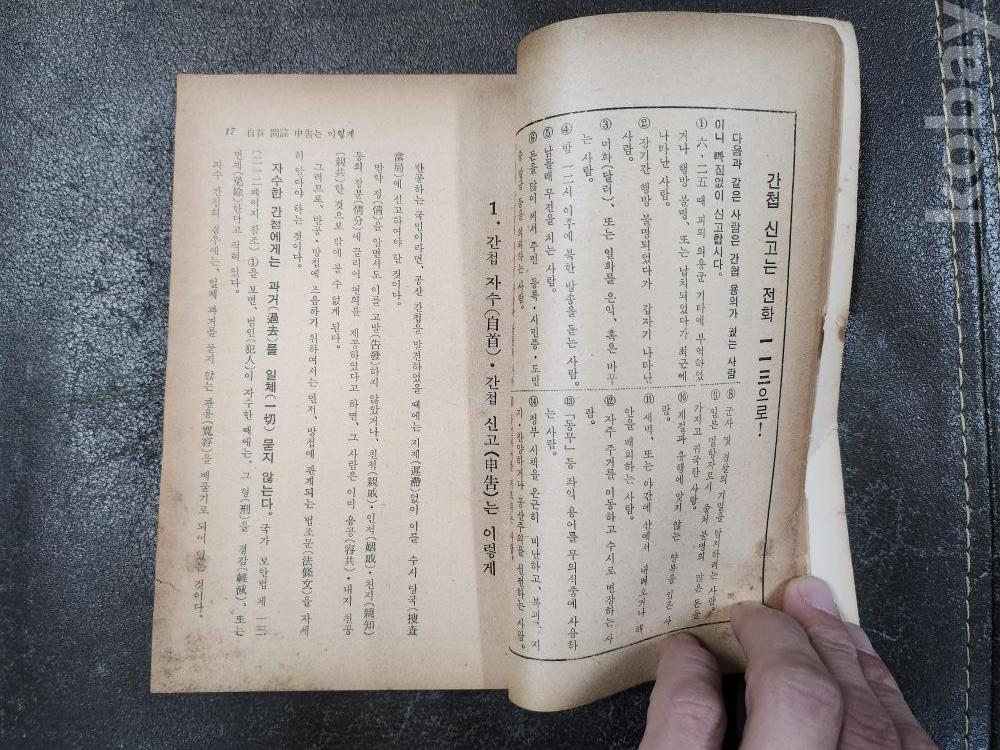 간첩 신고는 전화 一一三으로!
다음과 같은 사람은 간첩 용의가 있는 사람
이니 빠짐없이 신고합시다.
① 六·二五 때 괴뢰 의용군 기타에 부역하였
거나 행방 불명, 또는 납치되었다가 최근에
나타난 사람.
② 장기간 행방 불명되었다가 갑자기 나타난
사람.
③ 미화(달러), 또는 일화를 은익, 혹은 바꾸
는 사람.
④ 밤 一二시 이후에 북한 방송을 듣는 사람.
⑤ 남몰래 무전을 치는 사람.
⑥ 돈을 많이 써서 주민 등록·시민증·도민
⑧ 군사 및 경찰의 기밀을 탐지하려는 사람.
⑨ 일본 밀항자로서 출처 불명의 많은 돈을
가지고 귀국한 사람.
⑩ 계절과 유행에 맞지 않는 양복을 입은 사
람.
⑪ 새벽, 또는 야간에 산에서 내려오거나 해
안을 배회하는 사람.
⑫ 자주 주거를 이동하고 수시로 변장하는 사
람.
⑬ 「동무」 등 좌익 용어를 무의식중에 사용하
는 사람.
⑭ 정부 시책을 은근히 비난하고, 북괴를 지
지·찬양하거나 공산주의를 선전하는 사람.
1. 간첩 자수(自首)·간첩 신고(申告)는 이렇게
반공하는 국민이라면, 공산 간첩을 발견하였을 때에는 지체(遲滯)없이 이를 수사 당국(搜査
當局)에 신고하여야 할 것이다.
만약 정(情)을 알면서도 이를 고발(告發)하지 않았거나, 친척(親戚)·인척(姻戚)·친지(親知)
등의 정분(情分)에 끌리어 편의를 제공하였다고 하면, 그 사람은 이미 용공(容共)·내지 친공
(親共)한 것으로 밖에 볼 수 없게 된다.
그러므로, 반공·방첩에 즈음하기 위하여서는 먼저, 방첩에 관계되는 법조문(法條文)을 자세
히 알아야 하는 것이다.
자수한 간첩에게는 과거(過去)를 일체(一切) 묻지 않는다. 국가 보안법 제 一三
(二一二페이지 참조) ①을 보면, 범인(犯人)이 자수한 때에는, 그 형(刑)을 경감(輕減), 또는
면제(免除)한다고 적혀 있다.
자수 간첩의 경우에는, 일체 과거를 묻지 않는 관용(寬容)을 베풀기로 되어 있는 것이다.
17 自首 間諜 申告는 이렇게
kobay